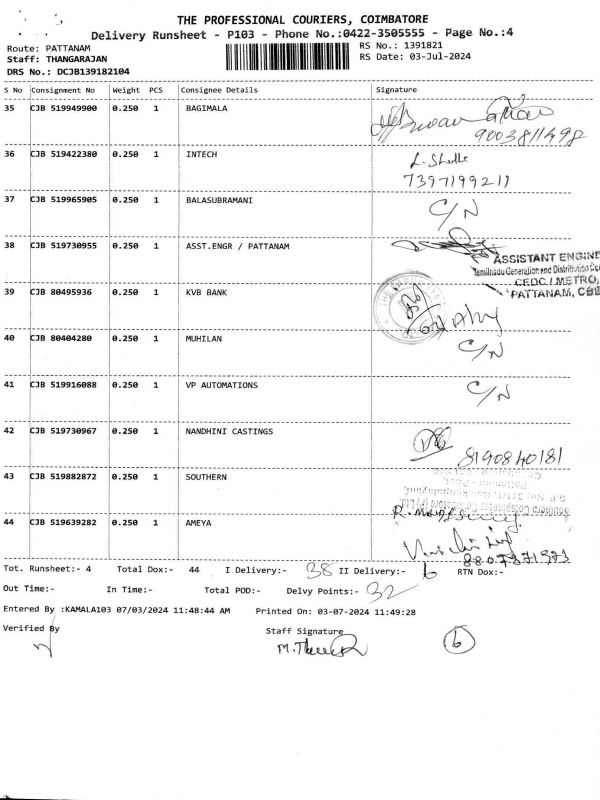 THE PROFESSIONAL COURIERS, COIMBATORE
Delivery Runsheet - P103 - Phone No.:0422-3505555 - Page No.:4
Route: PATTANAM
RS No.: 1391821
Staff: THANGARAJAN
RS Date: 03-Jul-2024
DRS No.: DCJB139182104
S No Consignment No Weight PCS Consignee Details Signature
35 CJB 519949900 0.250 1 BAGIMALA
9003811498
36 CJB 519422380 0.250 1 INTECH
7397199211
37 CJB 519965905 0.250 1 BALASUBRAMANI C/N
38 CJB 519730955 0.250 1 ASST.ENGR / PATTANAM
ASSISTANT ENGINE
Tamilnadu Generation and Distribution Co
CEDC / METRO,
PATTANAM, CBE
39 CJB 80495936 0.250 1 KVB BANK
40 CJB 80404280 0.250 1 MUHILAN C/N
41 CJB 519916088 0.250 1 VP AUTOMATIONS C/N
42 CJB 519730967 0.250 1 NANDHINI CASTINGS
8190840181
43 CJB 519882872 0.250 1 SOUTHERN
44 CJB 519639282 0.250 1 AMEYA
Tot. Runsheet:- 4 Total Dox:- 44 I Delivery:- 38 II Delivery:- 6 RTN Dox:-
Out Time:- In Time:- Total POD:- Delvy Points:- 32
Entered By :KAMALA103 07/03/2024 11:48:44 AM Printed On: 03-07-2024 11:49:28
Verified By Staff Signature
6